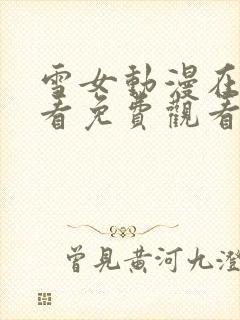 雪女動漫在
看免費觀看
曾見黃河九澄